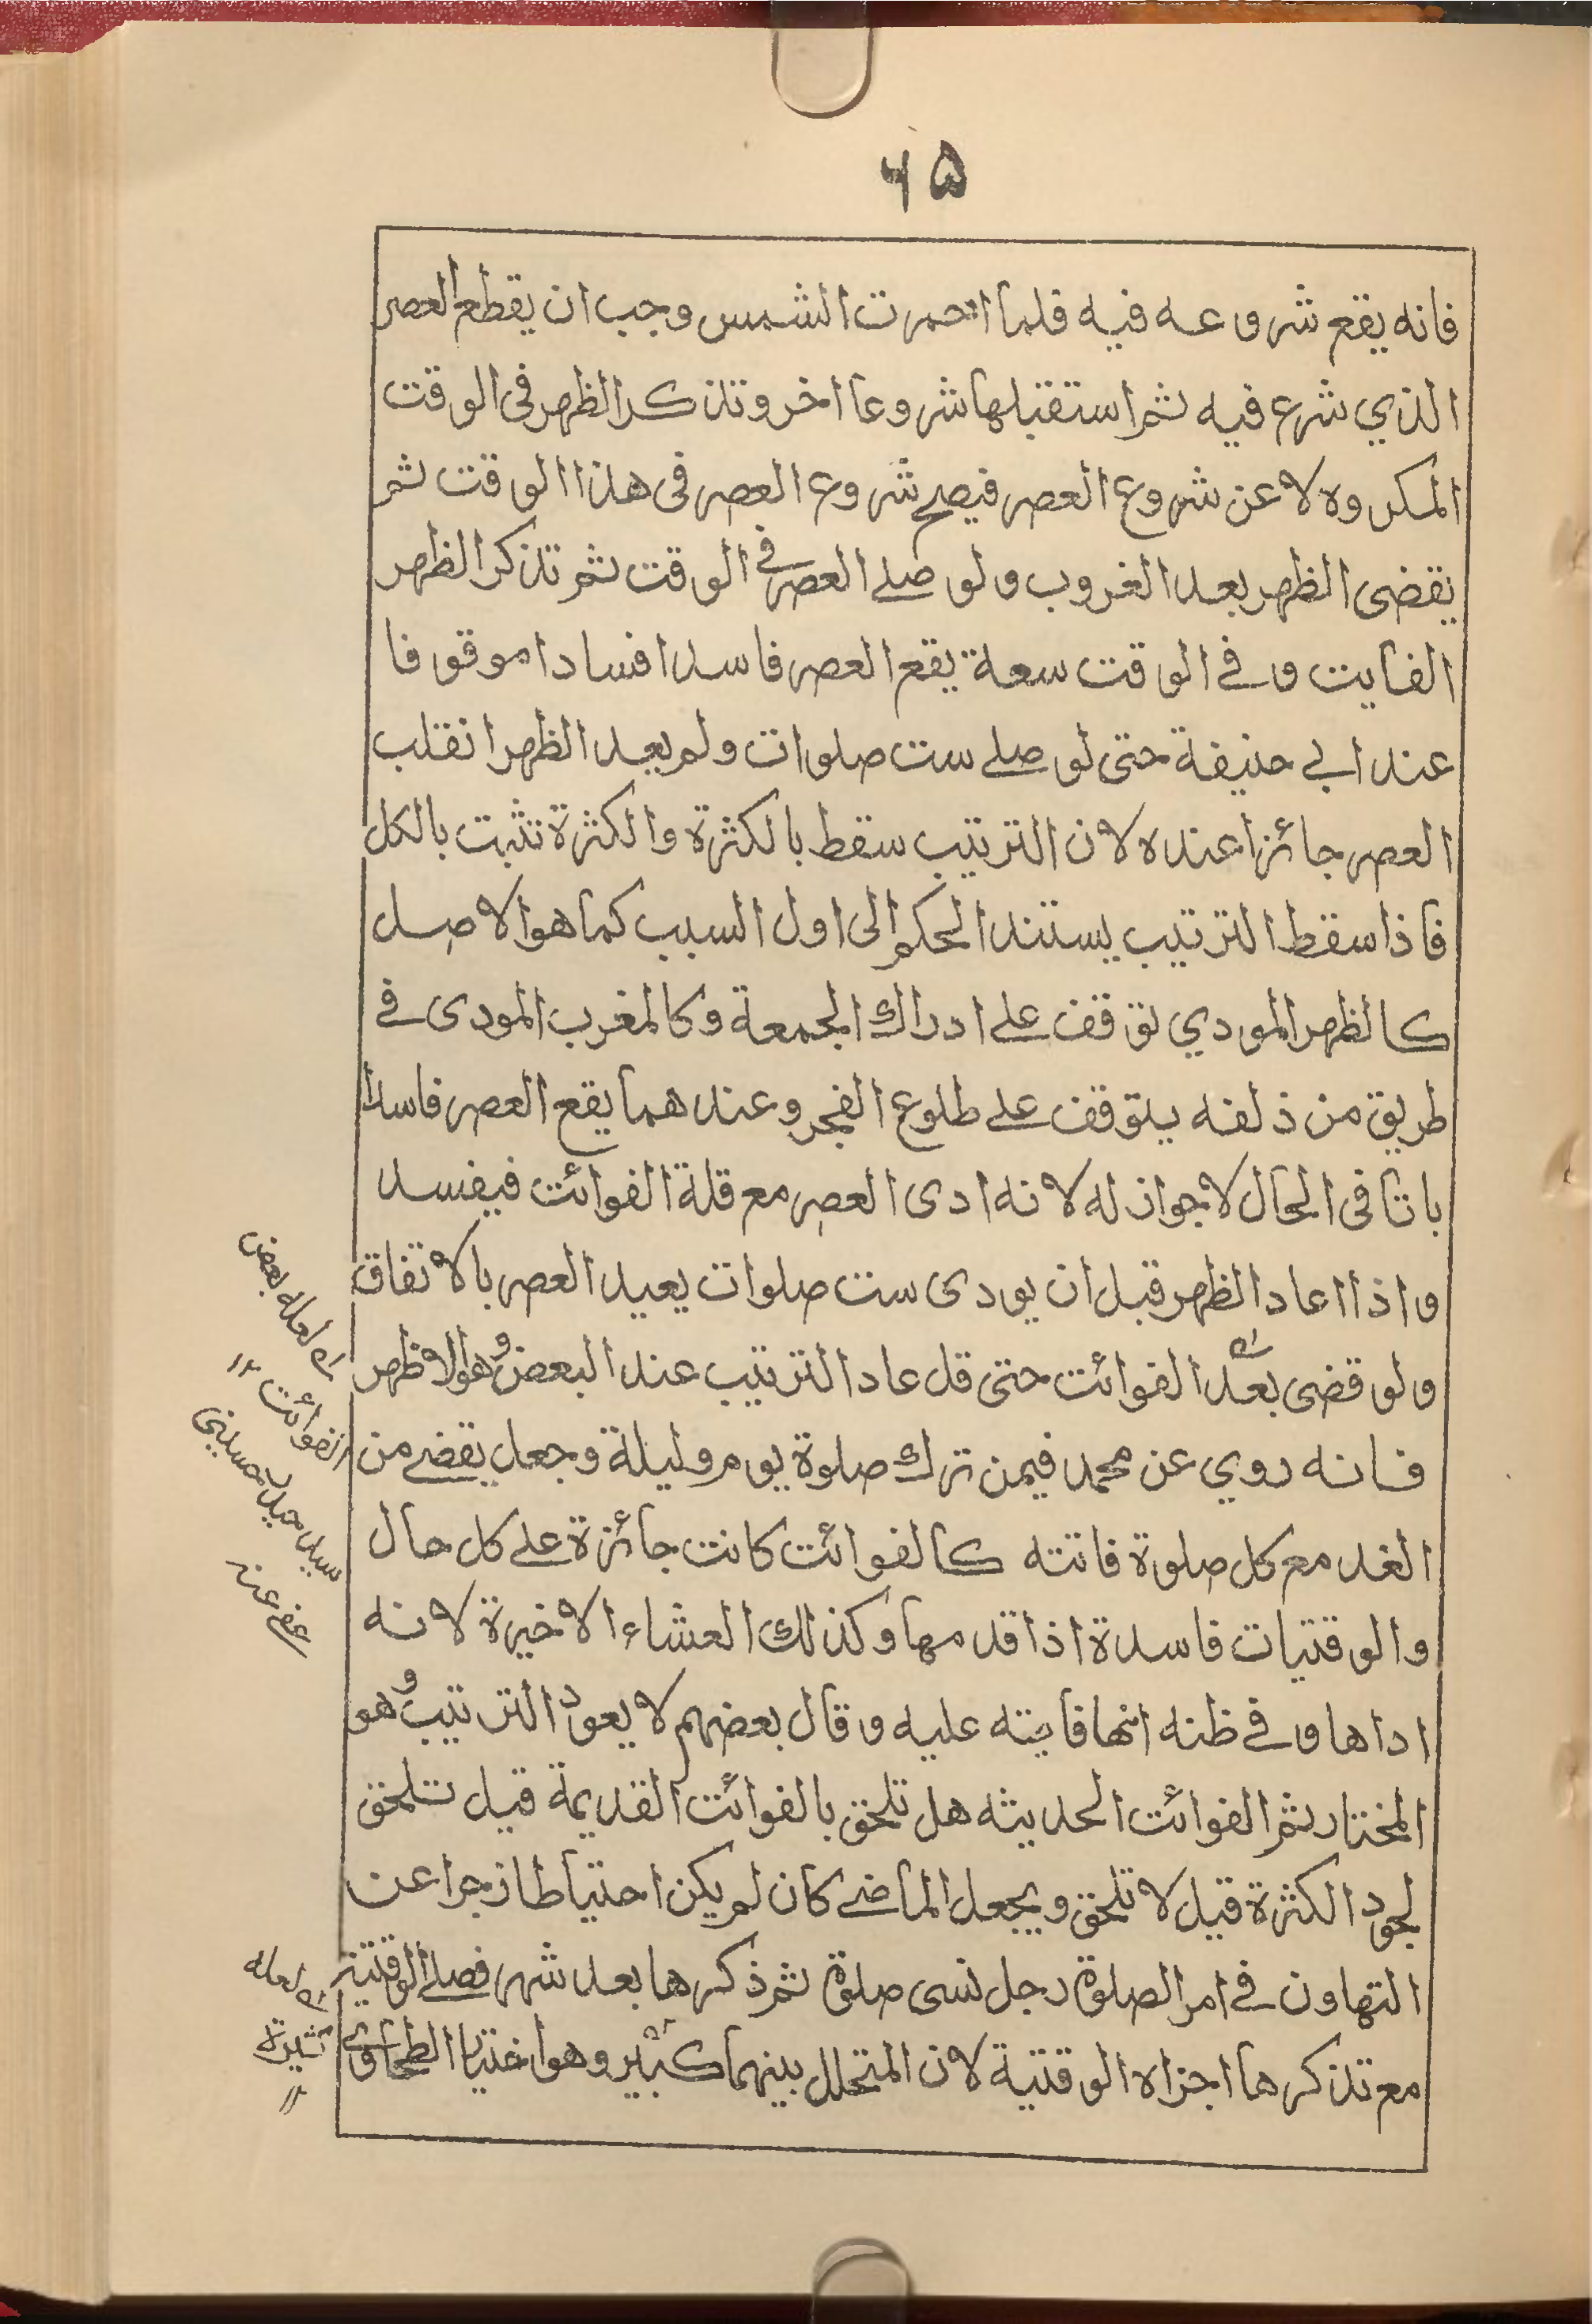 ۶۵
فانه يقع شروعه فيه فلما احمرت الشمس وجب ان يقطع العصر
الذي شرع فيه ثم استقبلها شروعا اخر وتذكر الظهر فى الوقت
المكروه لا عن شروع العصر فيصح شروع العصر فى هذا الوقت ثم
يقضى الظهر بعد الغروب ولو صلے العصر فے الوقت ثم تذكر الظهر
الفايت وفے الوقت سعة يقع العصر فاسدا فسادا موقوفا
عند ابے حنيفة حتى لو صلے ست صلوات ولم يعد الظهر انقلب
العصر جائزا عنده لان الترتيب سقط بالكثرة والكثرة تثبت بالكل
فاذا سقط الترتيب يستند الحكم الى اول السبب كما هوا لاصل
كالظهر المودي توقف علے ادراك الجمعة وكالمغرب المودى فے
طريق من ذلفه يتوقف علے طلوع الفجر وعندهما يقع العصر فاسدا
باتا فى الحال لا جواز له لانه ادى العصر مع قلة الفوائت فيفسد
واذا اعاد الظهر قبل ان يودى ست صلوات يعيد العصر بالاتفاق
ولو قضى بعد الفوائت حتى قل عاد الترتيب عند البعض وهو الاظهر
فانه روي عن محمد فيمن ترك صلوة يوم وليلة وجعل يقضے من
الغد مع كل صلوة فاتته كالفوائت كانت جائزة علے كل حال
والوقتيات فاسدة اذا قدمها وكذلك العشاء الاخيرة لانه
اداها وفے ظنه انها فايته عليه وقال بعضهم لا يعود الترتيب وهو
المختار ثم الفوائت الحديثه هل تلحق بالفوائت القديمة قيل تلحق
لجود الكثرة قيل لا تلحق ويجعل الماضے كان لم يكن احتياطا زجرا عن
التهاون فے امر الصلوة رجل نسى صلوة ثم ذكرها بعد شهر فصلے الوقتية
مع تذكرها اجزاه الوقتية لان المتخلل بينهما كثير وهو اختيار الطحاوے
لعله بعض
الفوائت ۱۲
سيد حسينى
عفى عنه
لعله
كثيرة
۱۲